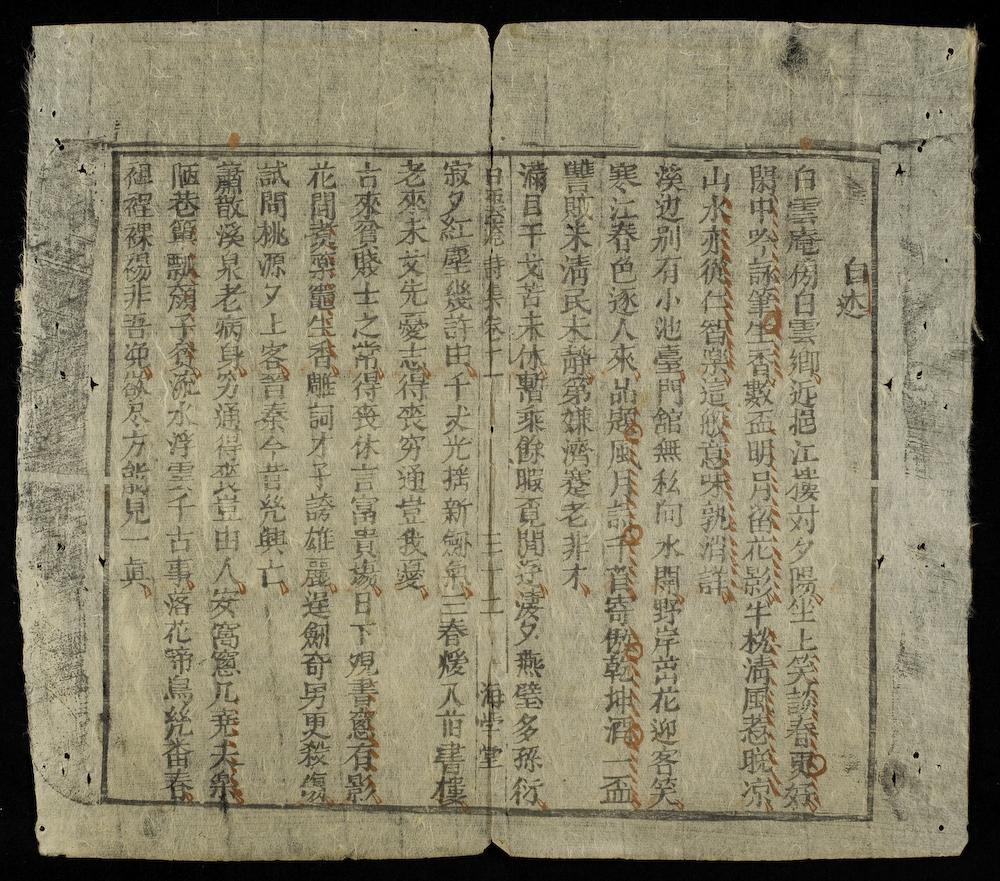 自述
白雲庵傍白雲鄉近挹江樓対夕陽坐上笑談春更好
閑中吟詠筆生香數盃明月畱花影半枕清風惹晚凉
山水亦從仁智樂這般意味孰消詳
溪辺別有小池臺門館無私向水開野岸岩花迎客笑
寒江春色逐人來品題風月詩千首寄傲乾坤酒一盃
讐賊未清民未靜第嫌濟蹇老非才
滿目干戈苦未休暫乘餘暇覓閒遊淒夕燕壁多孫衍
白雲庵詩集卷十一 三十二 海學堂
寂夕紅塵幾許由千丈光搖新劍氣三春煖入旧書樓
老來未艾先憂志得喪穷通豈我憂
古來貧賤士之常得喪休言富貴塲日下覌書窓有影
花間煑藥竈生香雕詞才子誇雄麗逞劍奇男更殺傷
試問桃源夕上客晋秦今昔幾興亡
蕭散溪泉老病身穷通得丧豈由人安窩窓几尭夫樂
陋巷簞瓢顔子貧流水浮雲千古事落花啼鳥幾番春
袒裎裸裼非吾浼欲尽方能見一眞